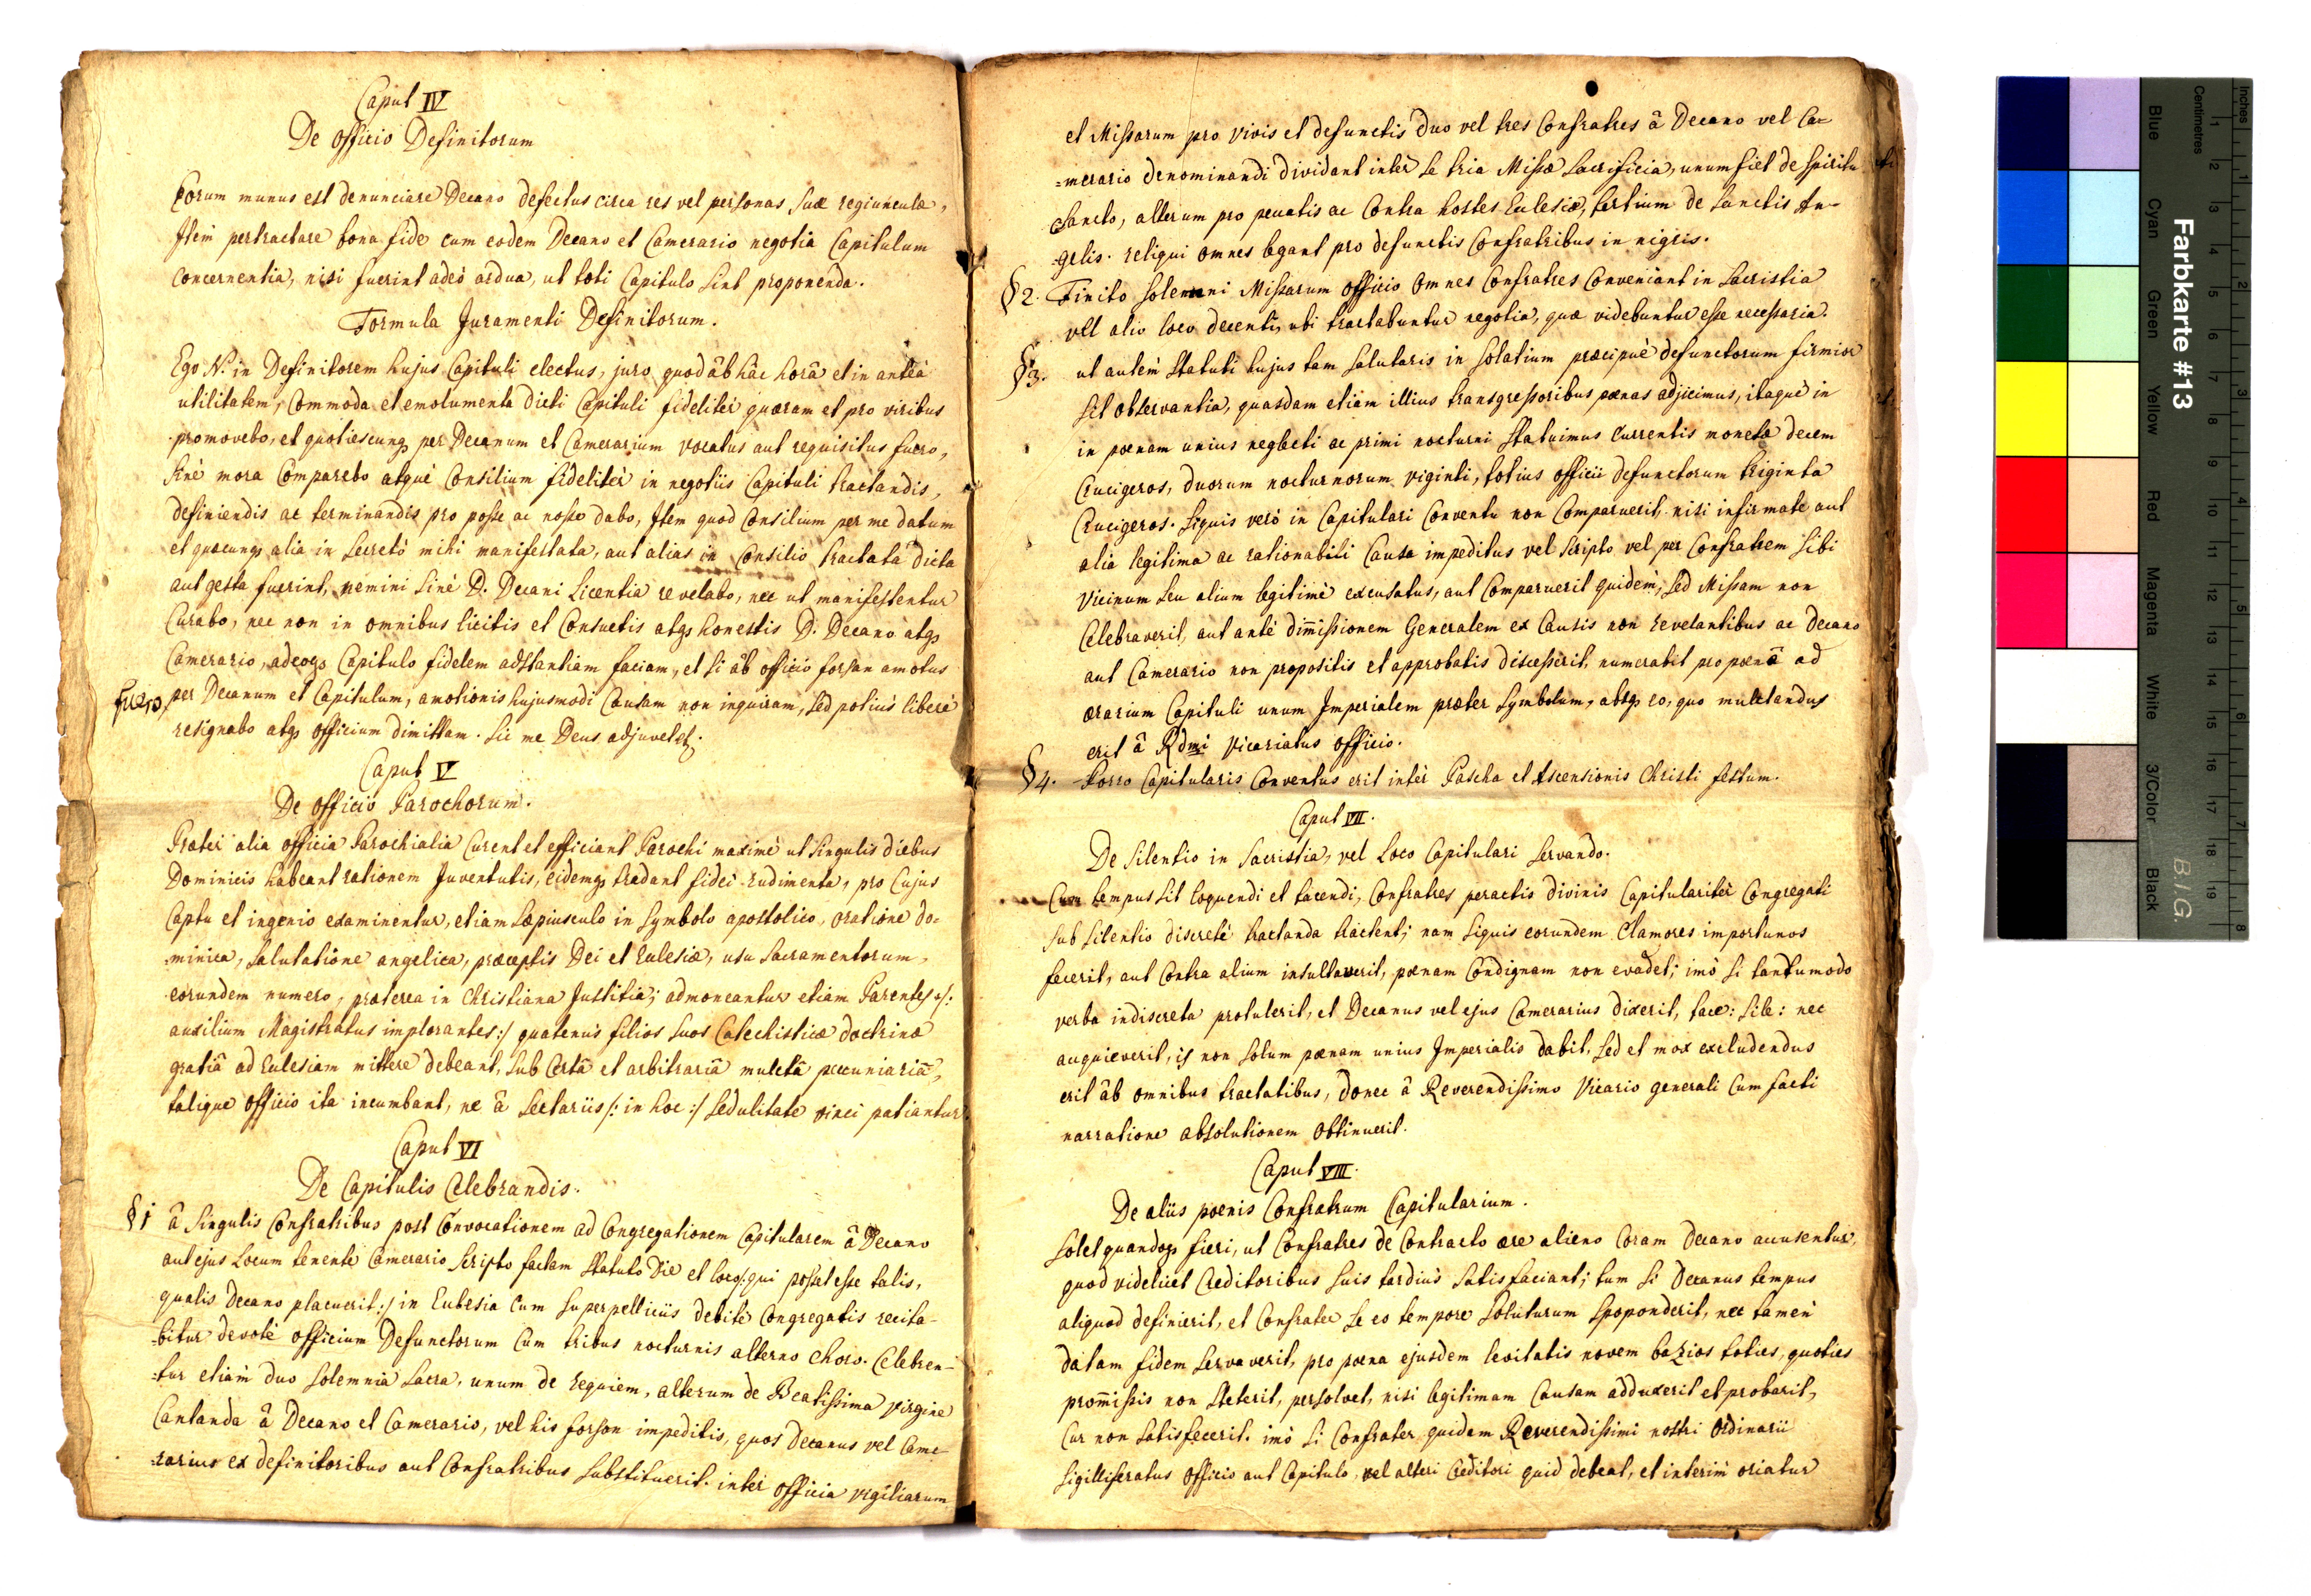 Caput IV
De Officio Definitorum
Eorum munus est denunciare Decano defectus circa res vel personas suæ regiunculæ,
Item pertractare bona fide cum eodem Decano et Camerario negotia Capitulum
concernentia, nisi fuerint adeò ardua, ut toti Capitulo sint proponenda.
Formula Juramenti Definitorum.
Ego N: in Definitorem hujus Capituli electus, juro, quod âb hâc horâ et in anteà
utilitatem, Commoda et emolumenta dicti Capituli fidelitèr quæram et pro viribus
promovebo, et quotiescunqз per Decanum et Camerarium vocatus aut requisitus fuero,
sinè mora Comparebo atquè Consilium fidelitèr in negotiis Capituli tractandis,
definiendis ac terminandis pro posse ac nosse dabo, Item quod Consilium per me datum
et quæcunqз alia in secretò mihi manifestata, aut alias in Consilio tractata dicta
aut gesta fuerint, nemini sinè D. Decani Licentia revelabo, nec ut manifestentur
Curabo, nec non in omnibus licitis et Consuetis atqз honestis D. Decano atqз
Camerario, adeoqз Capitulo fidelem adstantiam faciam, et si âb officio forsan amotus
fuero, per Decanum et Capitulum, amotionis hujusmodi Causam non inquiram, sed potiùs liberè
resignabo atqз officium dimittam. Sic me Deus adjuvet etc.
Caput V
De Officio Parochorum.
Præter alia officia Parochialia Curent et efficiant Parochi maximè ut singulis diebus
Dominicis habeant rationem Juventutis, eidemqз tradant fidei rudimenta, pro Cujus
Captu et ingenio examinentur, etiam sæpiusculo in Symbolo apostolico, oratione do=
=minica, salutatione angelica, præceptis Dei et Eclesiæ, usu Sacramentorum,
eorundem numero, præterea in Christiana Justitia; admoneantur etiam Parentes /:
auxilium Magistratus implorantes:/ quatenùs filios suos Catechisticæ doctrinæ
gratiâ ad Eclesiam mittere debeant, sub Certâ et arbitrariâ muletâ pecuniariâ,
talique officio ita incumbant, ne â Sectariis /: in hoc :/ sedulitate vinci patiantur.
Caput VI
De Capitulis Celebrandis.
§ 1 â singulis Confratribus post Convocationem ad Congregationem Capitularem â Decano
aut ejus Locum tenente Camerario scripto factam statuto Die et loco /: qui posset esse talis,
qualis Decano placuerit :/ in Eclesia Cum superpelliciis debitè Congregatis recita-
-bitur devotè officium Defunctorum Cum tribus nocturnis alterno choro. Celebren-
-tur etiàm duo solemnia Sacra, unum de requiem, alterum de Beatissima virgine
Cantanda â Decano et Camerario, vel his forsan impeditis, quos Decanus vel Came-
-rarius ex definitoribus aut Confratribus substituerit. inter officia vigiliarum
et Missarum pro vivis et defunctis duo vel tres Confratres â Decano vel Ca=
=merario denominandi dividant inter se tria Missæ sacrificia, unum fiet de Spiritu
Sancto, alterum pro peccatis ac Contra hostes Eclesiæ, tertium de Sanctis An-
-gelis. reliqui omnes legant pro defunctis Confratribus in nigris.
§ 2. Finito solemni Missarum officio Omnes Confratres Conveniant in Sacristia
vel alio loco decenti, ubi tractabuntur negotia, quæ videbuntur esse necessaria.
§ 3. ut autèm Statuti hujus tam salutaris in solatium præcipuè defunctorum firmior
sit observantia, quasdam etiam illius transgressoribus pænas adjicimus, itaquè in
in pœnam unius neglecti ac primi nocturni statuimus Currentis monetæ decem
Crucigeros, duorum nocturnorum viginti, totius officii defunctorum triginta
Crucigeros. siquis verò in Capitulari Conventu non Comparuerit, nisi infirmate aut
alia legitima ac rationabili Causa impeditus vel scripto vel per Confratrem sibi
vicinum seu alium legitimè excusatus, aut Comparuerit quidèm, sed Missam non
Celebraverit, aut antè dimissionem Generalem ex Causis non revelantibus ac Decano
aut Camerario non propositis et approbatis discesserit, numerabit pro pænâ ad
ærarium Capituli unum Imperialem præter Symbolum, absqз eo, quo muletandus
erit â Rdmi Vicariatus officio.
§ 4. Porro Capitularis Conventus erit intèr Pascha et Ascensionis Christi festum.
Caput VII.
De Silentio in Sacristia, vel Loco Capitulari servando.
Cum tempus sit loquendi et tacendi, Confratres peractis divinis Capitularitèr Congregati
sub silentio discretè tractanda tractent; nam siquis eorundem Clamores importunos
fecerit, aut Contra alium insultaverit, pœnam Condignam non evadet; imò si tantumodo
verba indiscreta protulerit, et Decanus vel ejus Camerarius dixerit, tace: sile: nec
acquieverit, is non solum pœnam unius Imperialis dabit, sed et mox excludendus
erit âb omnibus tractatibus, donec â Reverendissimo Vicario generali Cum facti
narratione absolutionem Obtinuerit.
Caput VIII.
De aliis pœnis Confratrum Capitularium.
Solet quandoqз fieri, ut Confratres de Contracto ære alieno Coram Decano accusentur,
quod videlicet Creditoribus suis tardiùs satisfaciant; tum si Decanus tempus
aliquod definierit, et Confrater se eo tempore soluturum spoponderit, nec tamen
datam fidem servaverit, pro pæna ejusdem levitatis novem bazios toties, quoties
promissis non steterit, persolvet, nisi legitimam Causam adduxerit et probarit,
Cur non satisfecerit. imò si Confrater quidem Reverendissimi nostri Ordinarii
Sigilliferatus Officio aut Capitulo, vel alteri Creditori quid debeat, et interìm oriatur
Farbkarte #13
Inches
Centimetres
1 2 3 4 5 6 7 8 9 10 11 12 13 14 15 16 17 18 19
1 2 3 4 5 6 7 8
Blue Cyan Green Yellow Red Magenta White 3/Color Black
B.I.G.